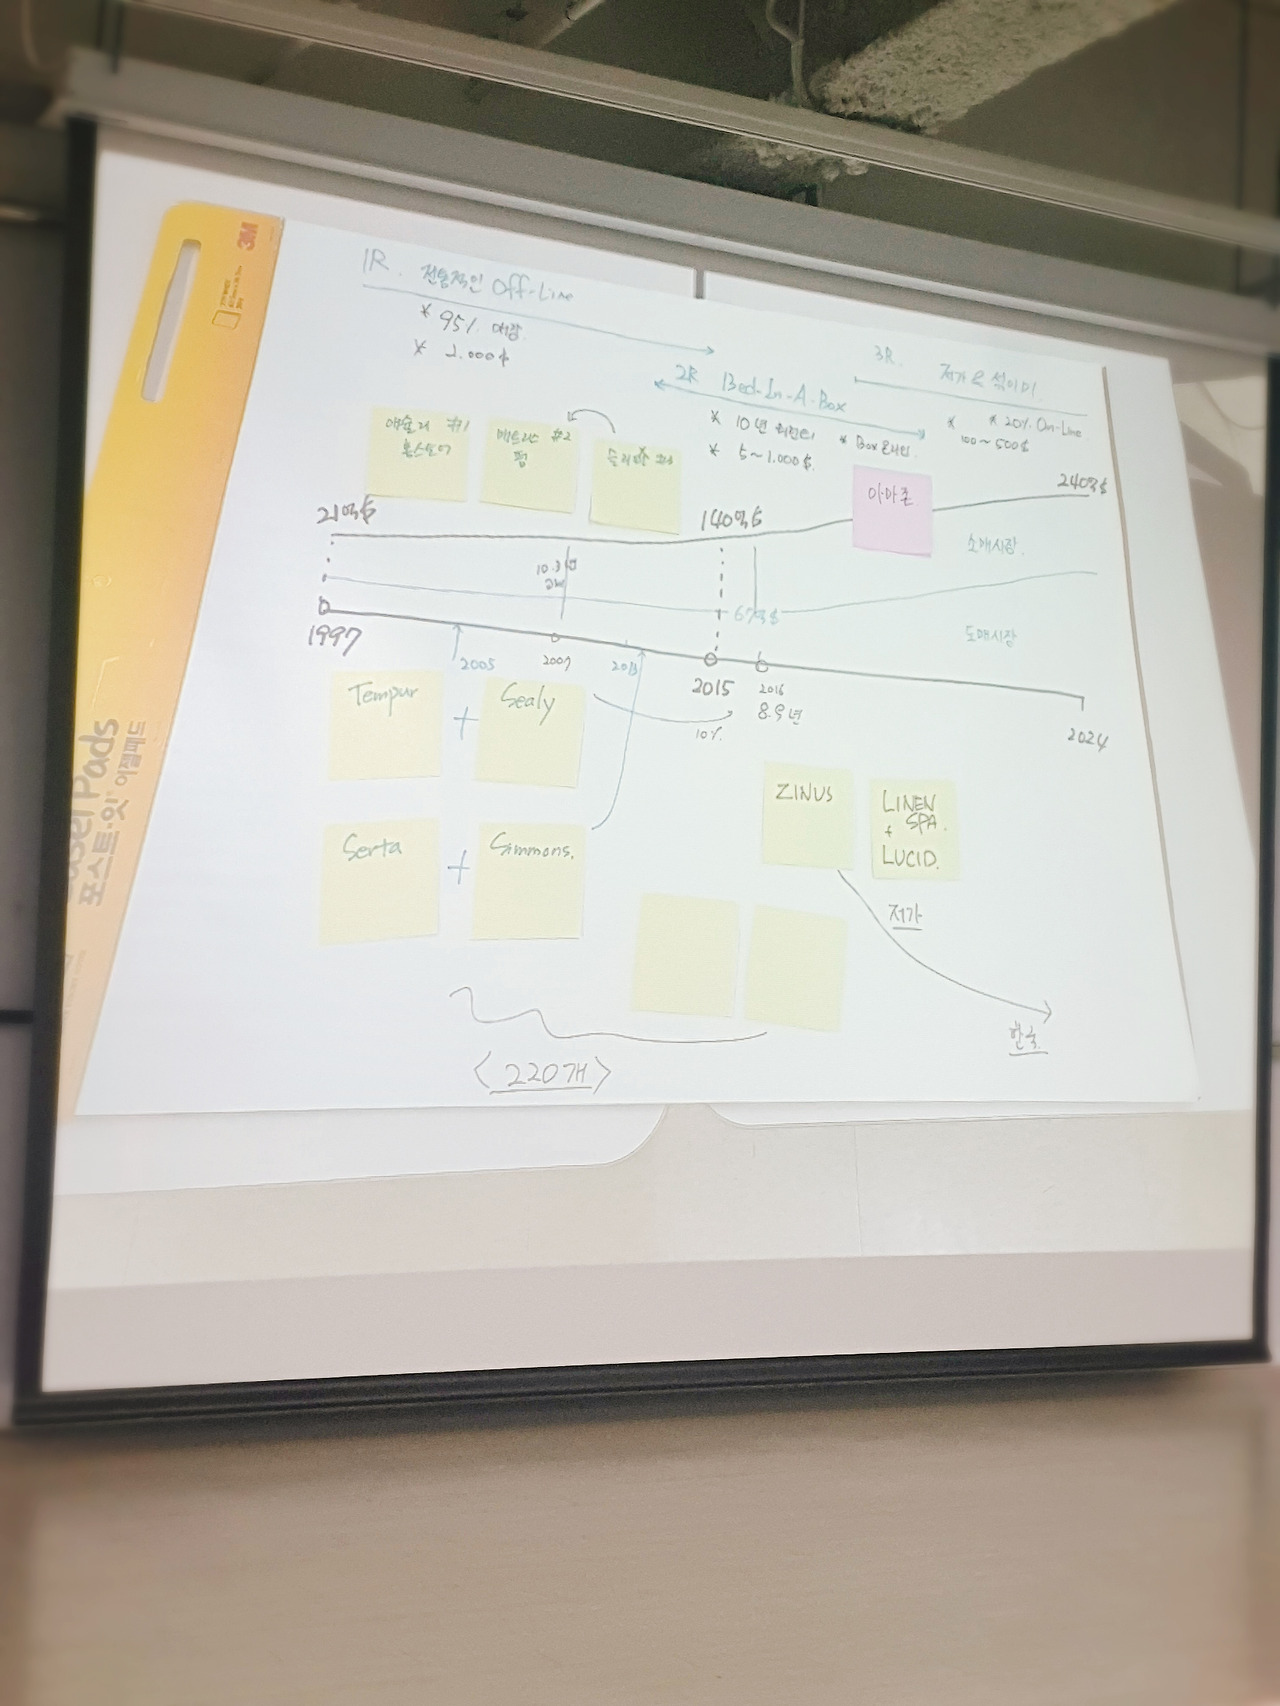 3M
Easel Pads
포스트-잇 이젤패드
1R. 전통적인 Off-Line
* 95% 매장.
* 2.000$
2R Bed-In-A-Box
* 10년
* 5~1.000$.
* Box 온라인
3R. 저가로
* * 20% On-Line
100~500$
애슐리 #1
홈스토어
매트리스 #2
펌
아마존
21억$
140억$
240억$
소매시장.
10.3
67억$
도매시장
1997
2005
2007
2013
2015
2016
8.9년
2024
Tempur + Sealy
10%.
Serta + Simmons.
ZINUS
LINEN
+ SPA.
LUCID.
저가
한국.
<220개>